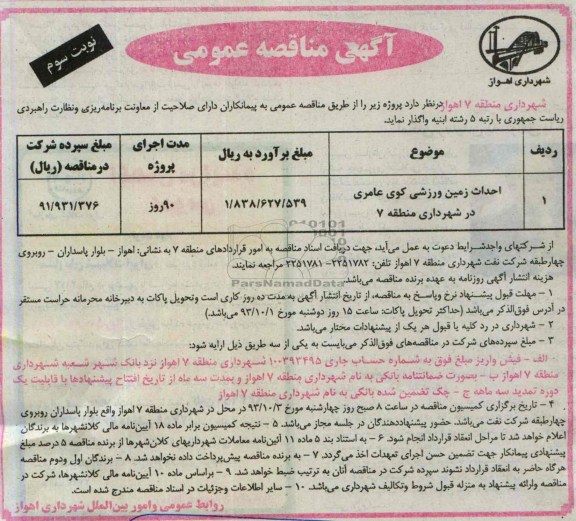 آگهی مناقصه عمومی
نوبت سوم
شهرداری اهواز
شهرداری منطقه ۷ اهواز درنظر دارد پروژه زیر را از طریق مناقصه عمومی به پیمانکاران دارای صلاحیت از معاونت برنامه‌ریزی ونظارت راهبردی
ریاست جمهوری با رتبه ۵ رشته ابنیه واگذار نماید.
ردیف موضوع مبلغ برآورد به ریال مدت اجرای پروژه مبلغ سپرده شرکت درمناقصه (ریال)
۱ احداث زمین ورزشی کوی عامری در شهرداری منطقه ۷ ۱/۸۳۸/۶۲۷/۵۳۹ ۹۰روز ۹۱/۹۳۱/۳۷۶
از شرکتهای واجدشرایط دعوت به عمل می‌آید، جهت دریافت اسناد مناقصه به امور قراردادهای منطقه ۷ به نشانی: اهواز - بلوار پاسداران - روبروی
چهارطبقه شرکت نفت شهرداری منطقه ۷ اهواز تلفن: ۲۲۵۱۷۸۲-۲۲۵۱۷۸۱ مراجعه نمایند.
هزینه انتشار آگهی روزنامه به عهده برنده مناقصه می‌باشد.
ParsNamadData
۱ - مهلت قبول پیشنهاد نرخ وپاسخ به مناقصه، از تاریخ انتشار آگهی به‌مدت ده روز کاری است وتحویل پاکات به دبیرخانه محرمانه حراست مستقر
در آدرس فوق‌الذکر می‌باشد (حداکثر تحویل پاکات: ساعت ۱۵ روز دوشنبه مورخ ۹۳/۱۰/۱ می‌باشد)
۲ - شهرداری در رد کلیه یا قبول هر یک از پیشنهادات مختار می‌باشد.
۳ - مبلغ سپرده‌های شرکت در مناقصه‌های فوق‌الذکر می‌بایست به یکی از سه طریق ذیل ارایه شود:
الف - فیش واریز مبلغ فوق به شماره حساب جاری ۱۰۰۳۹۲۴۹۵ شهرداری منطقه ۷ اهواز نزد بانک شهر شعبه شهرداری
منطقه ۷ اهواز ب - بصورت ضمانتنامه بانکی به نام شهرداری منطقه ۷ اهواز و بمدت سه ماه از تاریخ افتتاح پیشنهادها با قابلیت یک
دوره تمدید سه ماهه ج - چک تضمین شده بانکی به نام شهرداری منطقه ۷ اهواز
۴ - تاریخ برگزاری کمیسیون مناقصه در ساعت ۸ صبح روز چهارشنبه مورخ ۹۳/۱۰/۳ در محل در شهرداری منطقه ۷ اهواز واقع بلوار پاسداران روبروی
چهارطبقه شرکت نفت می‌باشد. حضور پیشنهاددهندگان در جلسه مجاز می‌باشد. ۵ - نتیجه کمیسیون برابر ماده ۱۸ آیین‌نامه مالی کلانشهرها به برندگان
اعلام خواهد شد تا مراحل انعقاد قرارداد انجام شود. ۶ - به استناد بند ۵ ماده ۱۱ آئین‌نامه معاملات شهرداریهای کلان‌شهرها از برنده مناقصه ۵ درصد مبلغ
پیشنهادی پیمانکار جهت تضمین حسن اجرای تعهدات اخذ می‌گردد. ۷ - به برنده مناقصه پیش‌پرداخت داده نخواهد شد. ۸ - برندگان اول ودوم مناقصه
هرگاه حاضر به انعقاد قرارداد نشوند سپرده شرکت در مناقصه آنان به ترتیب ضبط خواهد شد. ۹ - براساس ماده ۱۰ آیین‌نامه مالی کلانشهرها، شرکت در
مناقصه وارائه پیشنهاد به منزله قبول شروط وتکالیف شهرداری می‌باشد. ۱۰ - سایر اطلاعات وجزئیات در اسناد مناقصه مندرج شده است.
روابط عمومی وامور بین‌الملل شهرداری اهواز